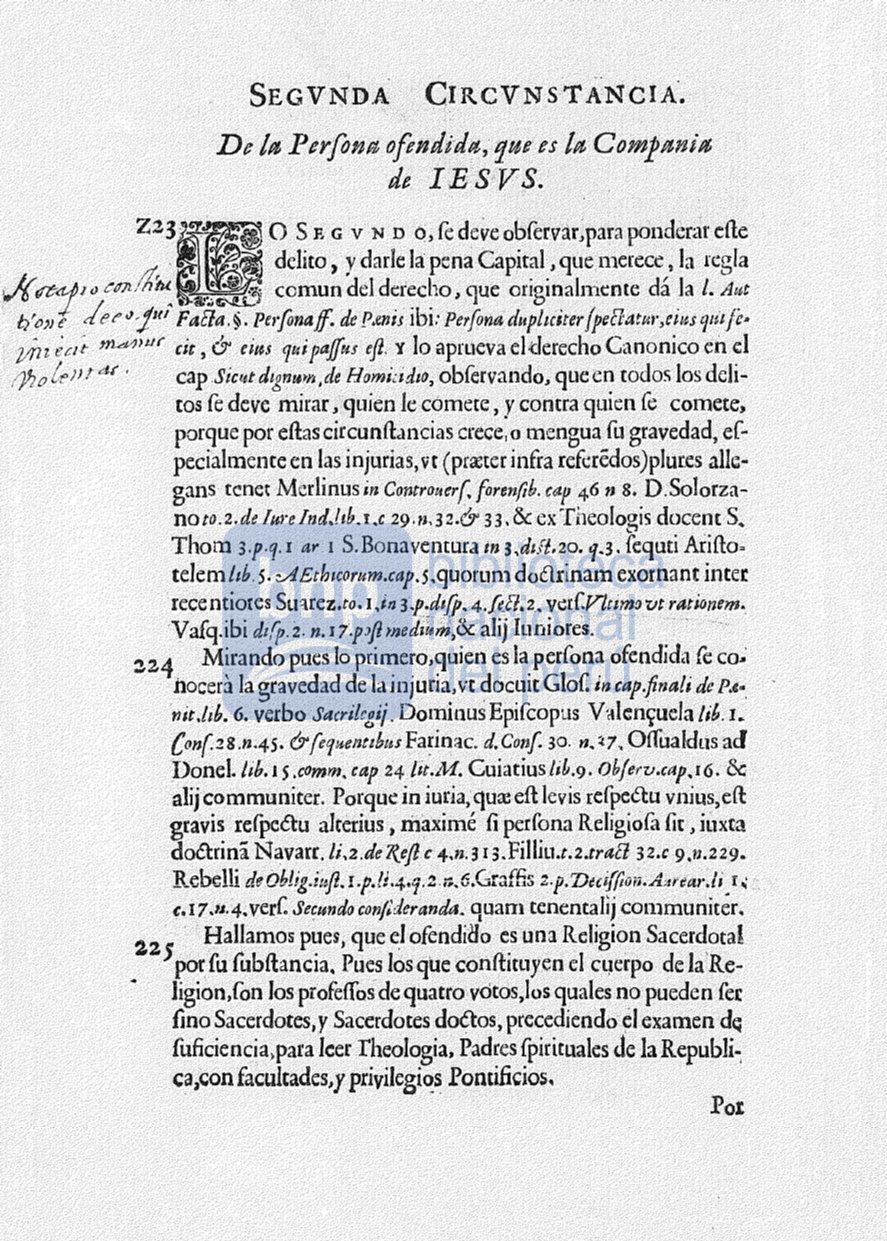 SEGVNDA CIRCVNSTANCIA.
De la Perſona ofendida, que es la Compania
de IESVS.
223 LO SEGVNDO, ſe deve obſervar, para ponderar eſte
delito, y darle la pena Capital, que merece, la regla
comun del derecho, que originalmente dá la l. Aut
Facta. §. Perſona ff. de Pænis ibi: Perſona dupliciter ſpectatur, eius qui fe-
cit, & eius qui paſſus eſt. Y lo aprueva el derecho Canonico en el
cap Sicut dignum, de Homicidio, obſervando, que en todos los deli-
tos ſe deve mirar, quien le comete, y contra quien ſe comete,
porque por eſtas circunſtancias crece, o mengua ſu gravedad, eſ-
pecialmente en las injurias, vt (præter infra referẽdos) plures alle-
gans tenet Merlinus in Controuerſ. forenſib. cap 46 n 8. D. Solorza-
no to. 2. de Iure Ind. lib. 1. c 29. n. 32. & 33. & ex Theologis docent S.
Thom 3. p. q. 1 ar 1 S. Bonaventura in 3. diſt. 20. q. 3. ſequti Ariſto-
telem lib. 5. AEthicorum. cap. 5. quorum doctrinam exornant inter
recentiores Suarez. to. 1. in 3. p. diſp. 4. ſect. 2. verſ. Vltimo vt rationem.
Vaſq. ibi diſp. 2. n. 17. poſt medium, & alij Iuniores.
224 Mirando pues lo primero, quien es la perſona ofendida ſe co-
nocerà la gravedad de la injuria, vt docuit Gloſ. in cap. finali de Pæ-
nit. lib. 6. verbo Sacrilegij. Dominus Epiſcopus Valençuela lib. 1.
Conſ. 28. n. 45. & ſequentibus Farinac. d. Conſ. 30. n. 27. Oſſualdus ad
Donel. lib. 15. comm. cap 24 lit. M. Cuiatius lib. 9. Obſerv. cap. 16. &
alij communiter. Porque in iuria, quæ eſt levis reſpectu vnius, eſt
gravis reſpectu alterius, maximé ſi perſona Religioſa ſit, iuxta
doctrinã Navarr. li. 2. de Reſt c 4. n. 313. Filliu. t. 2. tract 32. c 9. n. 229.
Rebelli de Oblig. iuſt. 1. p. li. 4. q. 2 n. 6. Graffis 2. p. Deciſſion. Aurear. li 1.
c. 17. n. 4. verſ. Secundo conſideranda. quam tenent alij communiter.
225 Hallamos pues, que el ofendido es una Religion Sacerdotal
por ſu ſubſtancia. Pues los que conſtituyen el cuerpo de la Re-
ligion, ſon los profeſſos de quatro votos, los quales no pueden ſer
ſino Sacerdotes, y Sacerdotes doctos, precediendo el examen de
ſuficiencia, para leer Theologia, Padres ſpirituales de la Republi-
ca, con facultades, y privilegios Pontificios.
Por
tione de eo. qui
iniecit manus
violentas.
bnp
biblioteca
nacional
del perú